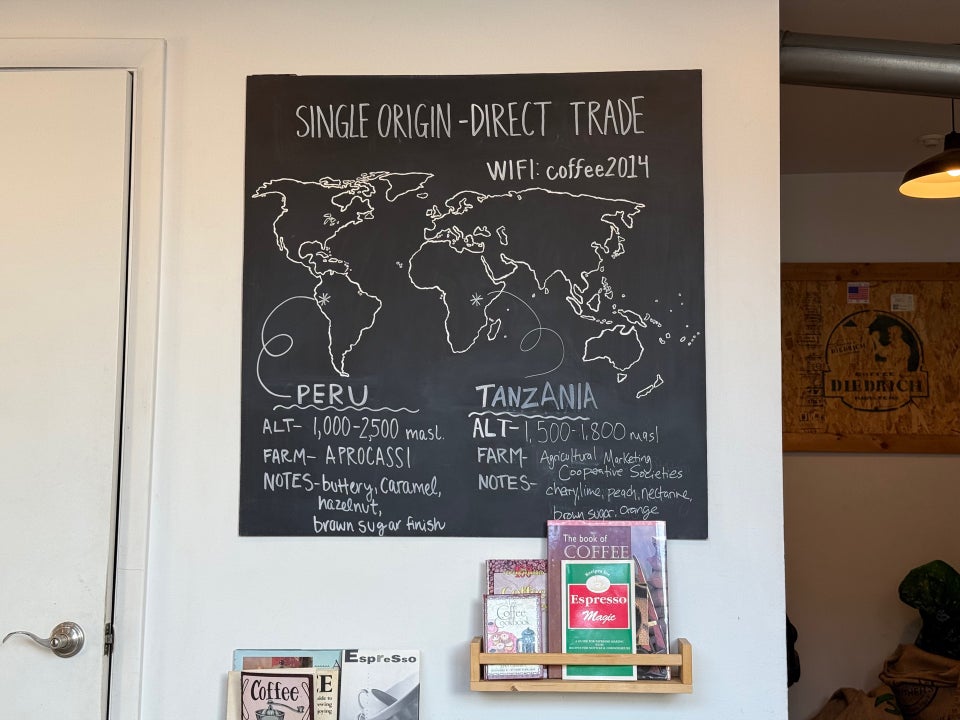 SINGLE ORIGIN - DIRECT TRADE
WIFI: coffee2014
PERU
ALT- 1,000-2,500 masl.
FARM- APROCASSI
NOTES- buttery, caramel,
hazelnut,
brown sugar finish
TANZANIA
ALT- 1,500-1,800 masl
FARM- Agricultural Marketing
Cooperative Societies
NOTES- cherry, lime, peach, nectarine,
brown sugar, orange
COFFEE
DIEDRICH
The book of
COFFEE
Recipes for
Espresso
Magic
Coffee
Cookbook
Espresso
Coffee